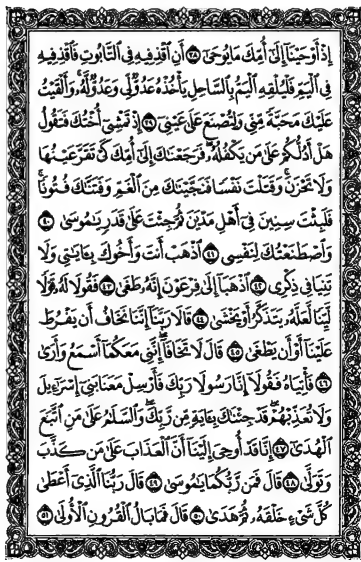 إِذْ أَوْحَيْنَا إِلَىٰ أُمِّكَ مَا يُوحَىٰ ٣٨ أَنِ اقْذِفِيهِ فِي التَّابُوتِ فَاقْذِفِيهِ
فِي الْيَمِّ فَلْيُلْقِهِ الْيَمُّ بِالسَّاحِلِ يَأْخُذْهُ عَدُوٌّ لِّي وَعَدُوٌّ لَّهُ ۚ وَأَلْقَيْتُ
عَلَيْكَ مَحَبَّةً مِّنِّي وَلِتُصْنَعَ عَلَىٰ عَيْنِي ٣٩ إِذْ تَمْشِي أُخْتُكَ فَتَقُولُ
هَلْ أَدُلُّكُمْ عَلَىٰ مَن يَكْفُلُهُ ۖ فَرَجَعْنَاكَ إِلَىٰ أُمِّكَ كَيْ تَقَرَّ عَيْنُهَا
وَلَا تَحْزَنَ ۚ وَقَتَلْتَ نَفْسًا فَنَجَّيْنَاكَ مِنَ الْغَمِّ وَفَتَنَّاكَ فُتُونًا ۚ
فَلَبِثْتَ سِنِينَ فِي أَهْلِ مَدْيَنَ ثُمَّ جِئْتَ عَلَىٰ قَدَرٍ يَا مُوسَىٰ ٤٠
وَاصْطَنَعْتُكَ لِنَفْسِي ٤١ اذْهَبْ أَنتَ وَأَخُوكَ بِآيَاتِي وَلَا
تَنِيَا فِي ذِكْرِي ٤٢ اذْهَبَا إِلَىٰ فِرْعَوْنَ إِنَّهُ طَغَىٰ ٤٣ فَقُولَا لَهُ قَوْلًا
لَّيِّنًا لَّعَلَّهُ يَتَذَكَّرُ أَوْ يَخْشَىٰ ٤٤ قَالَا رَبَّنَا إِنَّنَا نَخَافُ أَن يَفْرُطَ
عَلَيْنَا أَوْ أَن يَطْغَىٰ ٤٥ قَالَ لَا تَخَافَا ۖ إِنَّنِي مَعَكُمَا أَسْمَعُ وَأَرَىٰ
٤٦ فَأْتِيَاهُ فَقُولَا إِنَّا رَسُولَا رَبِّكَ فَأَرْسِلْ مَعَنَا بَنِي إِسْرَائِيلَ
وَلَا تُعَذِّبْهُمْ ۖ قَدْ جِئْنَاكَ بِآيَةٍ مِّن رَّبِّكَ ۖ وَالسَّلَامُ عَلَىٰ مَنِ اتَّبَعَ
الْهُدَىٰ ٤٧ إِنَّا قَدْ أُوحِيَ إِلَيْنَا أَنَّ الْعَذَابَ عَلَىٰ مَن كَذَّبَ
وَتَوَلَّىٰ ٤٨ قَالَ فَمَن رَّبُّكُمَا يَا مُوسَىٰ ٤٩ قَالَ رَبُّنَا الَّذِي أَعْطَىٰ
كُلَّ شَيْءٍ خَلْقَهُ ثُمَّ هَدَىٰ ٥٠ قَالَ فَمَا بَالُ الْقُرُونِ الْأُولَىٰ ٥١